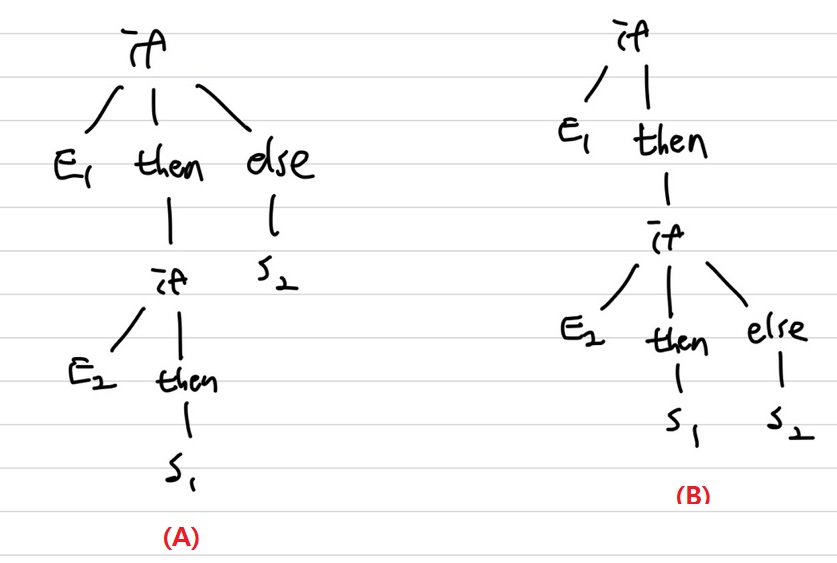 if
E1 then else
if S2
E2 then
S1
(A)
if
E1 then
if
E2 then else
S1 S2
(B)